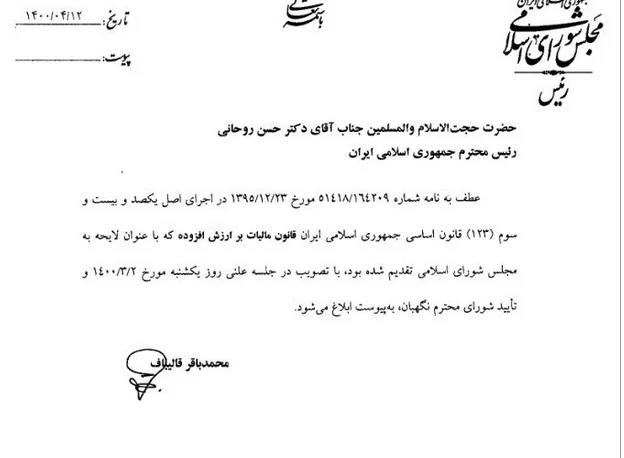 جمهوری اسلامی ایران
مجلس شورای اسلامی
رئیس
باسمه تعالی
تاریخ: ۱۴۰۰/۰۴/۱۲
پیوست:
حضرت حجت‌الاسلام والمسلمین جناب آقای دکتر حسن روحانی
رئیس محترم جمهوری اسلامی ایران
عطف به نامه شماره ۵۱۴۱۸/۱۶۴۲۰۹ مورخ ۱۳۹۵/۱۲/۲۳ در اجرای اصل یکصد و بیست و
سوم (۱۲۳) قانون اساسی جمهوری اسلامی ایران قانون مالیات بر ارزش افزوده که با عنوان لایحه به
مجلس شورای اسلامی تقدیم شده بود، با تصویب در جلسه علنی روز یکشنبه مورخ ۱۴۰۰/۳/۲ و
تأیید شورای محترم نگهبان، به‌پیوست ابلاغ می‌شود.
محمدباقر قالیباف